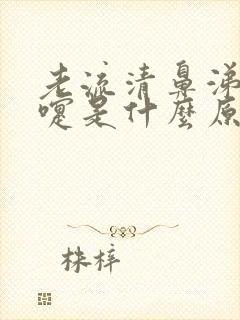 老流清鼻涕
嚏是什麼原
株梓